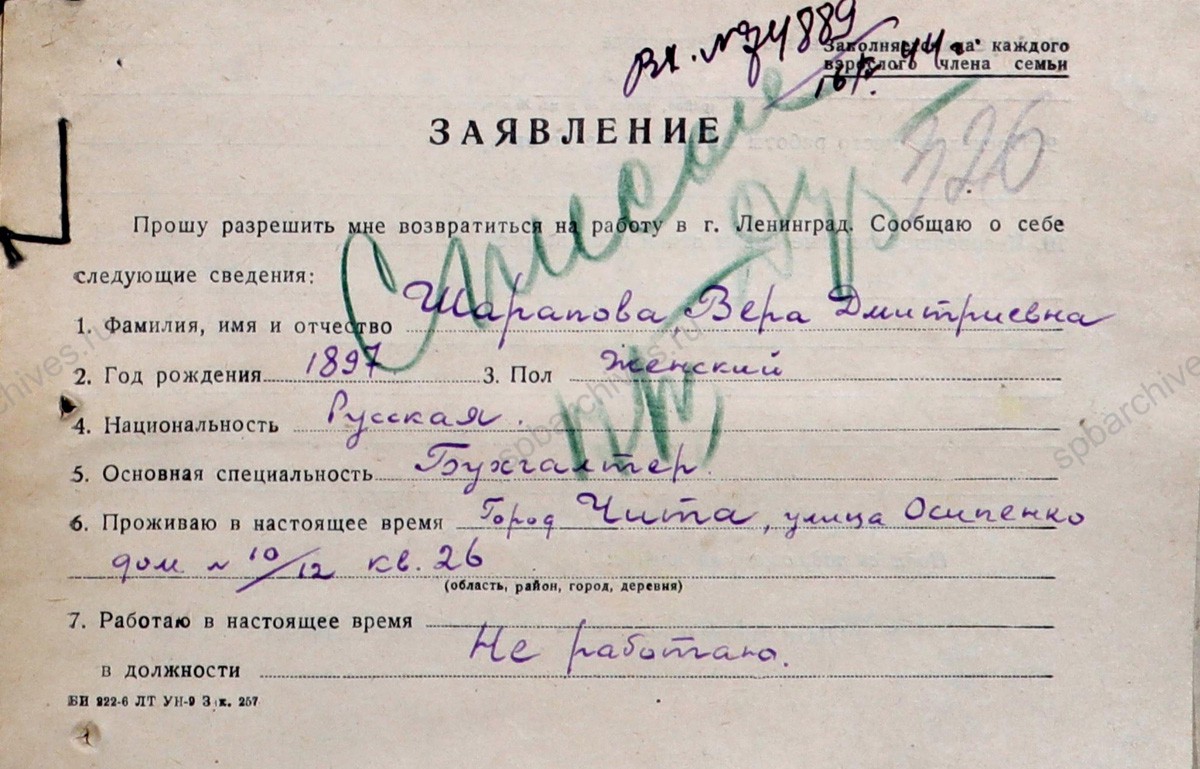 Вх. № 74889
Заполняется на каждого
взрослого члена семьи
44 г.
ЗАЯВЛЕНИЕ
326
Прошу разрешить мне возвратиться на работу в г. Ленинград. Сообщаю о себе
следующие сведения:
1. Фамилия, имя и отчество Шарапова Вера Дмитриевна
2. Год рождения 1897 3. Пол Женский
4. Национальность Русская.
5. Основная специальность Бухгалтер.
6. Проживаю в настоящее время Город Чита, улица Осипенко
дом № 10/12 кв. 26
(область, район, город, деревня)
7. Работаю в настоящее время
Не работаю.
в должности
БИ 922-6 ЛТ УН-9 З к. 257
spbarchives.ru
spbarchives.ru
spbarchives